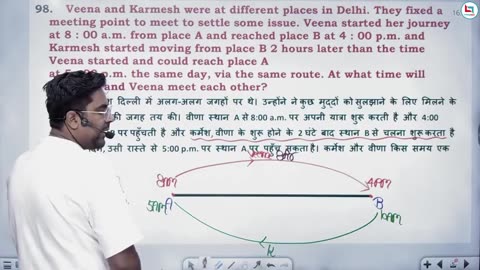 98. Veena and Karmesh were at different places in Delhi. They fixed a
meeting point to meet to settle some issue. Veena started her journey
at 8 : 00 a.m. from place A and reached place B at 4 : 00 p.m. and
Karmesh started moving from place B 2 hours later than the time
Veena started and could reach place A
p.m. the same day, via the same route. At what time will
and Veena meet each other?
दिल्ली में अलग-अलग जगहों पर थे। उन्होंने ने कुछ मुद्दों को सुलझाने के लिए मिलने के
की जगह तय की। वीणा स्थान A से 8:00 a.m. पर अपनी यात्रा शुरू करती है और 4:00
पर पहुँचती है और कर्मेश, वीणा के शुरू होने के 2 घंटे बाद स्थान B से चलना शुरू करता है
उसी रास्ते से 5:00 p.m. पर स्थान A पर पहुँच सकता है। कर्मेश और वीणा किस समय एक
8am
4pm
5pm A
B
10am
K